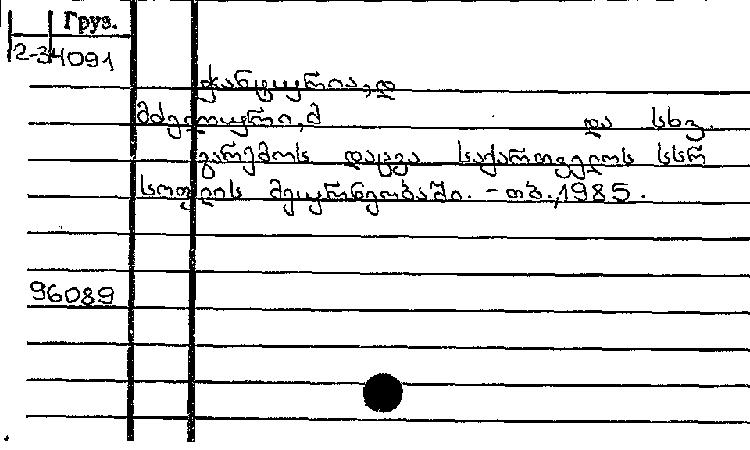 Груз.
2-34091
ქანტურია, დ
მძელური, მ და სხვ.
გარემოს დაცვა საქართველოს სსრ
სოფლის მეურნეობაში. - თბ., 1985.
96089